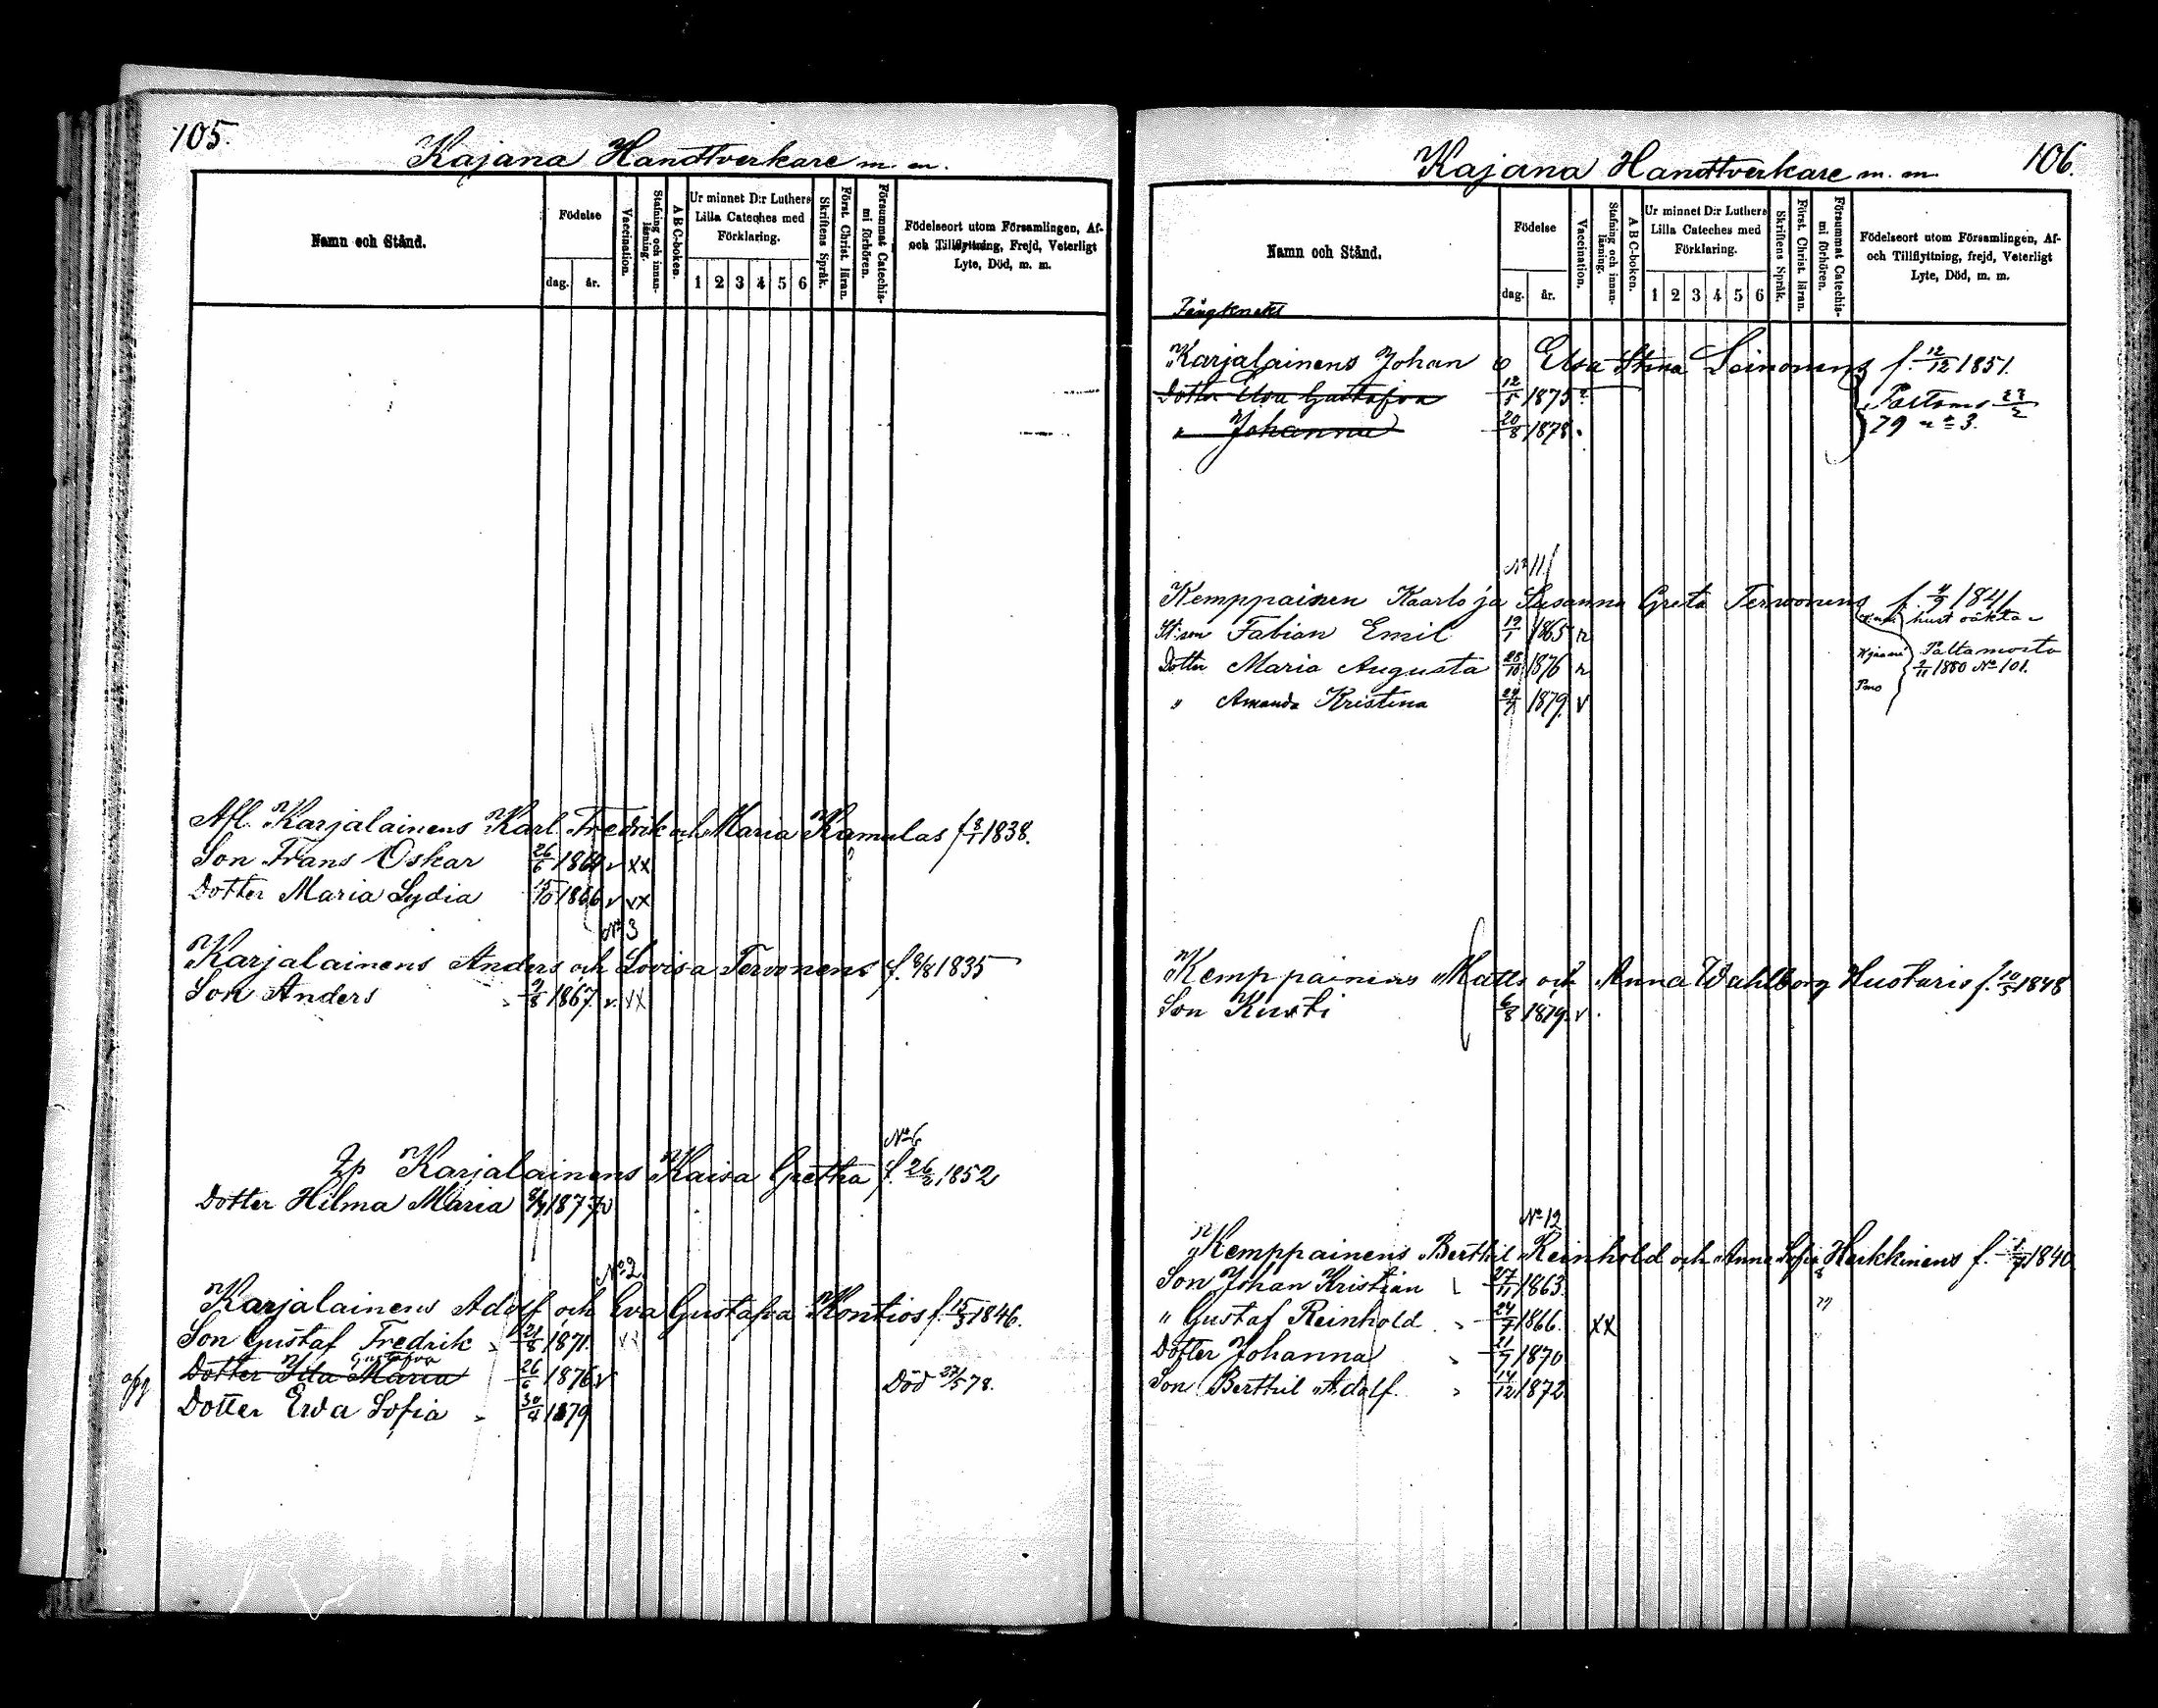 105.
Kajana Handtverkare m. m.
Namn och Stånd.
Födelse
dag. år.
Vaccination.
Stafning och innanläsning.
A B C-boken.
Ur minnet D:r Luthers Lilla Cateches med Förklaring.
1 2 3 4 5 6
Skriftens Språk.
Först. Christ. läran.
Försummat Catechismi förhören.
Födelseort utom Församlingen, Af- och Tillflyttning, Frejd, Veterligt Lyte, Död, m. m.
Afl. Karjalainens Karl Fredrik och Maria Kamulas f. 8/1 1838.
Son Frans Oskar 26/6 1864 v xx
Dotter Maria Lydia 15/10 1866 v vx
No 3
Karjalainens Anders och Lovisa Tervonens f. 9/8 1835
Son Anders 9/8 1867. v. xx
No 6
Karjalainens Kaisa Gretha f. 26/2 1852
Dotter Hilma Maria 1877 v
No 2
Karjalainens Adolf och Eva Gustafva Kontios f. 15/3 1846.
Son Gustaf Fredrik 21/8 1871.
Gustafva
Dotter Ida Maria 26/6 1876 v Död 27/5 78.
Dotter Ewa Sofia 30/4 1879
Kajana Handtverkare m. m.
106.
Namn och Stånd.
Födelse
dag. år.
Vaccination.
Stafning och innanläsning.
A B C-boken.
Ur minnet D:r Luthers Lilla Cateches med Förklaring.
1 2 3 4 5 6
Skriftens Språk.
Först. Christ. läran.
Försummat Catechismi förhören.
Födelseort utom Församlingen, Af- och Tillflyttning, frejd, Veterligt Lyte, Död, m. m.
Fångknekt
Karjalainens Johan o Elsa Stina Leinonens f. 12/12 1851.
Dotter Elsa Gustafva 12/5 1875
" Johanna 20/8 1878
79 no 3.
No 11
Kemppainen Kaarlo ja Susanna Greta Terwonens f. 4/9 1841
Fabian Emil 19/1 1865
Dotter Maria Augusta 28/10 1876
Paltamosta
2/11 1880 No 101.
" Amanda Kristina 1879. v
Kemppainens Matts och Anna Wahlborg Huotaris f. 10/5 1848
Son Kusti 6/8 1879. v
No 12
Kemppainens Berthil Reinhold och Anna Sofia Heikkinens f. 1840
Son Johan Kristian 27/11 1863
" Gustaf Reinhold 24/7 1866. xx
Dotter Johanna 21/9 1870
Son Berthil Adolf. 14/12 1872